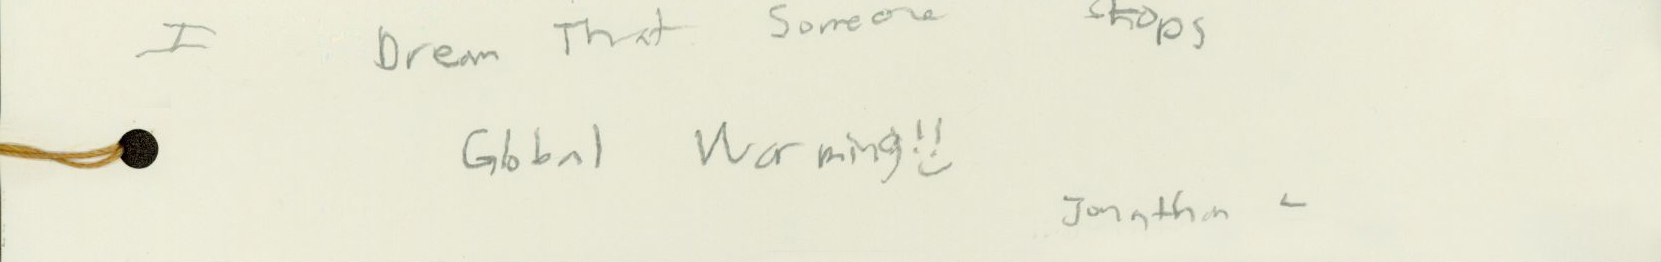 I Dream That Someone stops
Global Warming!!
Jonathan L